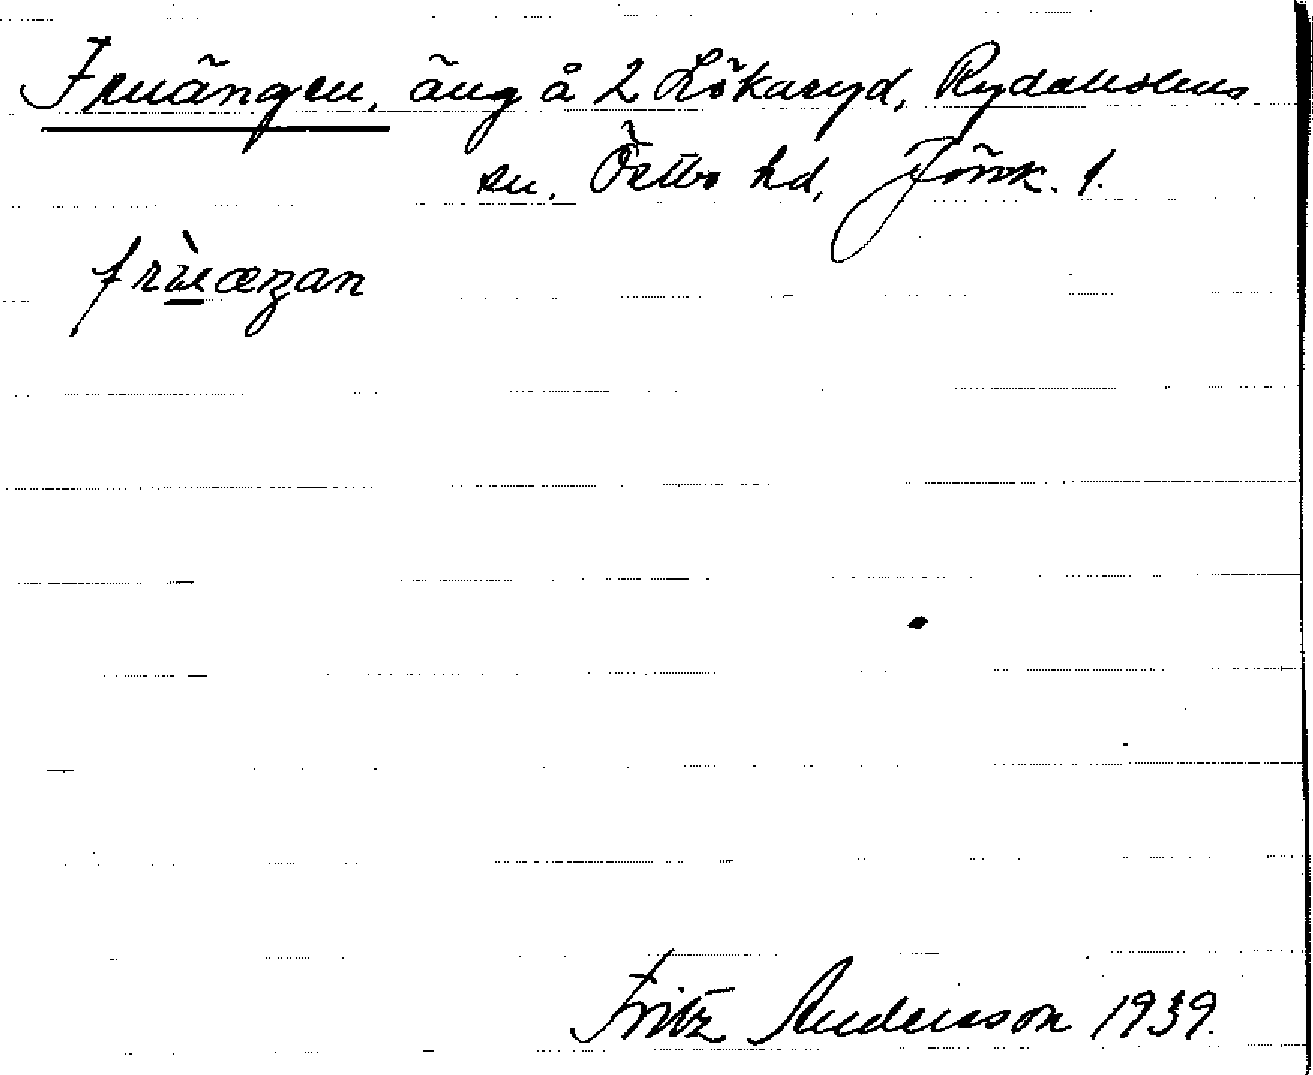 Fruängen, äng å 2 Lökaryd, Rydaholms
sn. Östbo hd, Jönk. l.
frùæŋan
Fritz Andersson 1939.